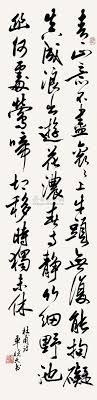 青山意不盡袞袞上牛頭無復能拘礙
真成浪出遊花濃春寺靜竹細野池
幽何處鶯啼切移時獨未休
杜甫詩